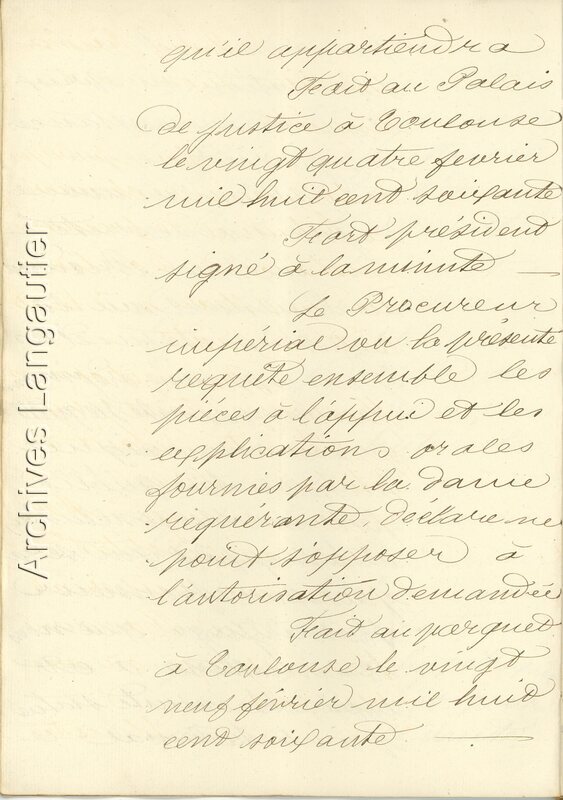 qu'il appartiendra
Fait au Palais
de justice à Toulouse
le vingt quatre fevrier
mil huit cent soixante
Fort président
signé à la minute
Le Procureur
impérial vu la présente
requête ensemble les
pièces à l'appui et les
explications orales
fournies par la dame
requérante, déclare ne
point s'opposer à
l'autorisation demandée
Fait au parquet
à Toulouse le vingt
neuf février mil huit
cent soixante
Archives Langautier